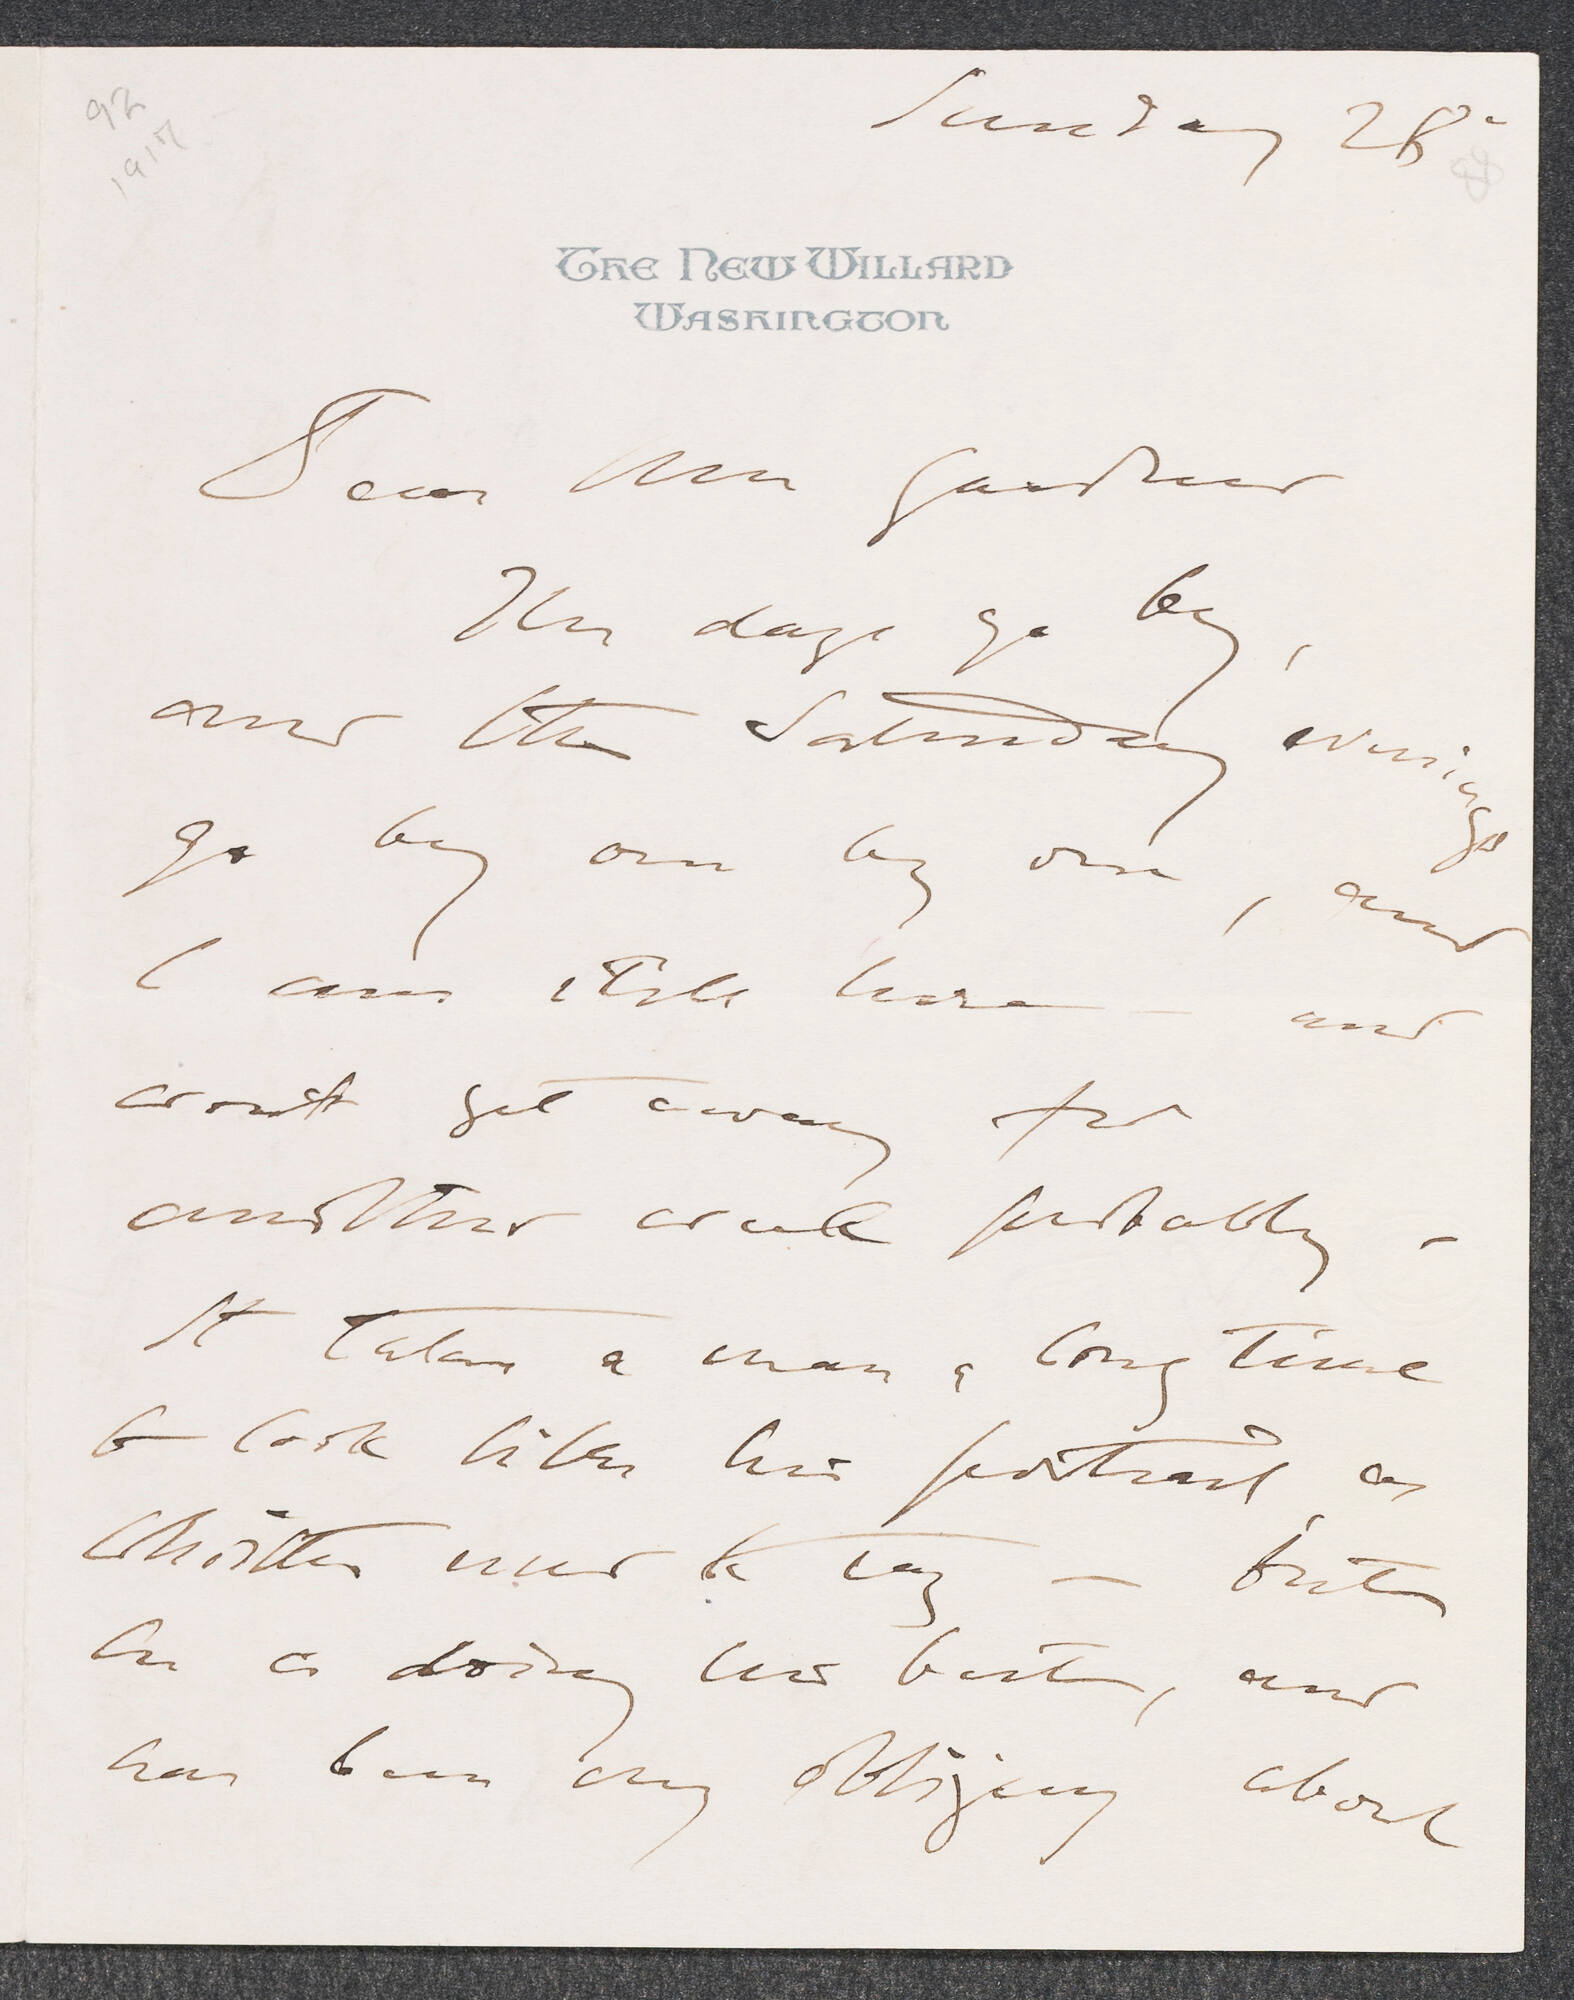 92
1917
Sunday 28th
THE NEW WILLARD
WASHINGTON
Dear Mrs Gardner
The days go by,
and the Saturday evenings
go by one by one, and
I am still here — and
wont get away for
another week probably —
It takes a man a long time
to look like his portrait, as
Whistler used to say — but
he is doing his best, and
has been very obliging about